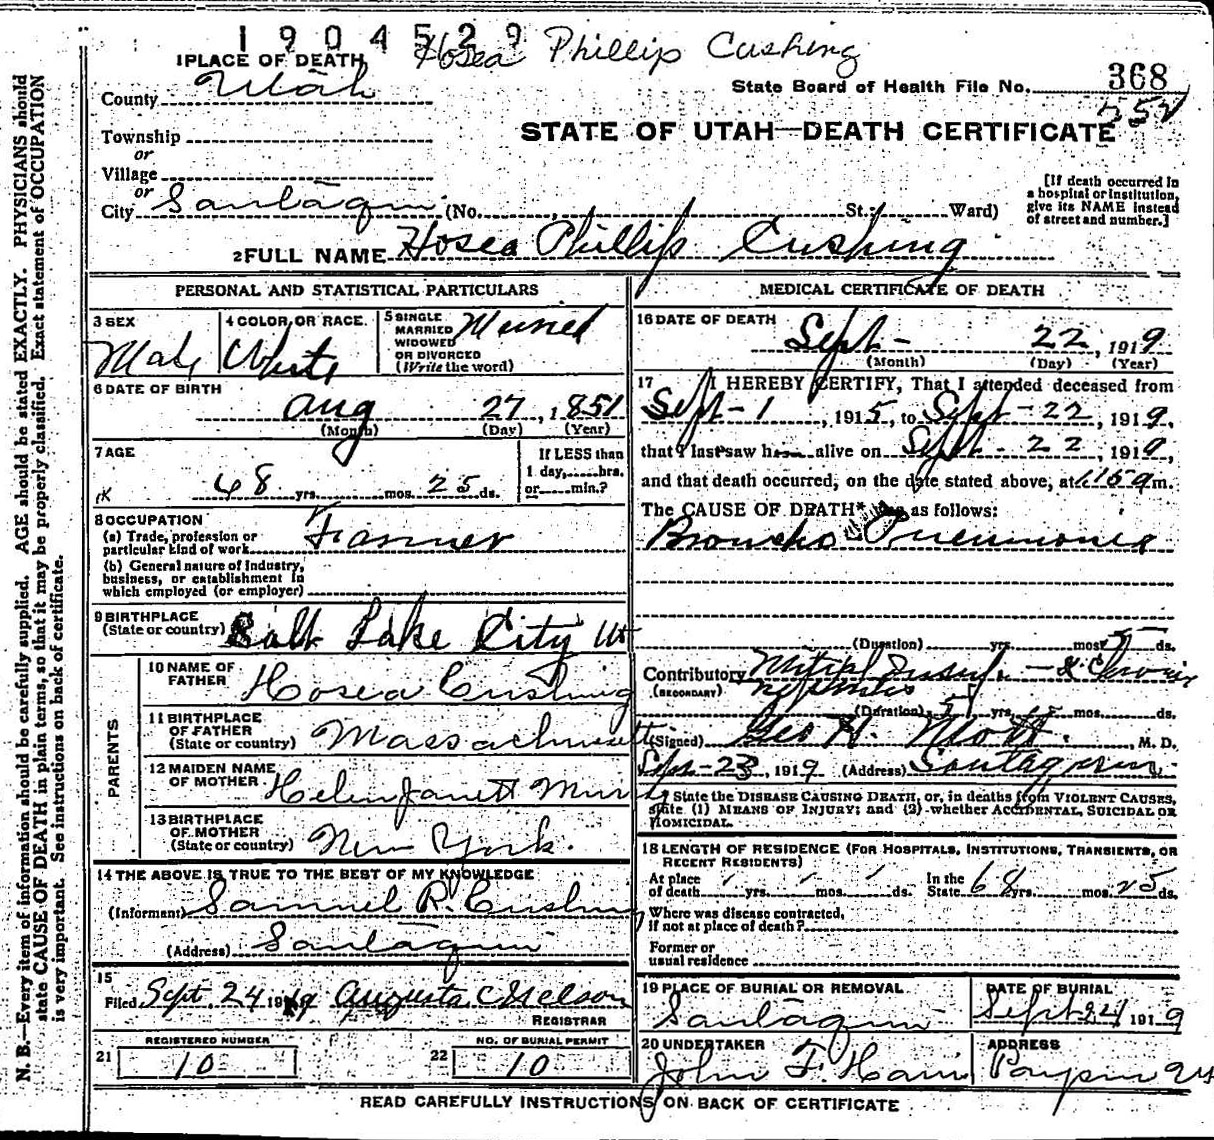 1904529 Hosea Phillip Cushing
1 PLACE OF DEATH
County Utah
State Board of Health File No. 368
Township
STATE OF UTAH—DEATH CERTIFICATE
or
Village
or
City Santaquin (No. St.; Ward)
[If death occurred in
a hospital or institution,
give its NAME instead
of street and number.]
2 FULL NAME Hosea Phillip Cushing
PERSONAL AND STATISTICAL PARTICULARS
3 SEX
Male
4 COLOR OR RACE
White
5 SINGLE
MARRIED
WIDOWED
OR DIVORCED
(Write the word)
Married
6 DATE OF BIRTH
Aug 27, 1851
(Month) (Day) (Year)
7 AGE
68 yrs. mos. 25 ds.
If LESS than
1 day, hrs.
or min.?
8 OCCUPATION
(a) Trade, profession or
particular kind of work Farmer
(b) General nature of Industry,
business, or establishment in
which employed (or employer)
9 BIRTHPLACE
(State or country) Salt Lake City Ut
PARENTS
10 NAME OF
FATHER Hosea Cushing
11 BIRTHPLACE
OF FATHER
(State or country) Massachusetts
12 MAIDEN NAME
OF MOTHER Helen Janett
13 BIRTHPLACE
OF MOTHER
(State or country) New York.
14 THE ABOVE IS TRUE TO THE BEST OF MY KNOWLEDGE
(Informant) Samuel R. Cushing
(Address) Santaquin
15
Filed Sept. 24 1919 Augusta C Nelson
REGISTRAR
REGISTERED NUMBER
21 10
NO. OF BURIAL PERMIT
22 10
MEDICAL CERTIFICATE OF DEATH
16 DATE OF DEATH
Sept- 22, 1919
(Month) (Day) (Year)
17 I HEREBY CERTIFY, That I attended deceased from
Sept-1, 1915, to Sept-22, 1919,
that I last saw h alive on Sept-22, 1919,
and that death occurred, on the date stated above, at 1.15 a m.
The CAUSE OF DEATH* was as follows:
Broncho Pneumonia
(Duration) yrs. mos. 5 ds.
Contributory Mitral Insuf. - & Chronic
(SECONDARY) nephritis
(Duration) 5 yrs. mos. ds.
(Signed) Geo H. Mott, M. D.
Sept-23, 1919 (Address) Santaquin
State the DISEASE CAUSING DEATH, or, in deaths from VIOLENT CAUSES,
state (1) MEANS OF INJURY; and (2) whether ACCIDENTAL, SUICIDAL OR
HOMICIDAL.
18 LENGTH OF RESIDENCE (FOR HOSPITALS, INSTITUTIONS, TRANSIENTS, OR
RECENT RESIDENTS)
At place
of death yrs. mos. ds.
In the
State 68 yrs. mos. 25 ds.
Where was disease contracted,
if not at place of death?
Former or
usual residence
19 PLACE OF BURIAL OR REMOVAL
Santaquin
DATE OF BURIAL
Sept 24 1919
20 UNDERTAKER
John F.
ADDRESS
Payson
READ CAREFULLY INSTRUCTIONS ON BACK OF CERTIFICATE
N. B.—Every item of information should be carefully supplied. AGE should be stated EXACTLY. PHYSICIANS should
state CAUSE OF DEATH in plain terms, so that it may be properly classified. Exact statement of OCCUPATION
is very important. See instructions on back of certificate.